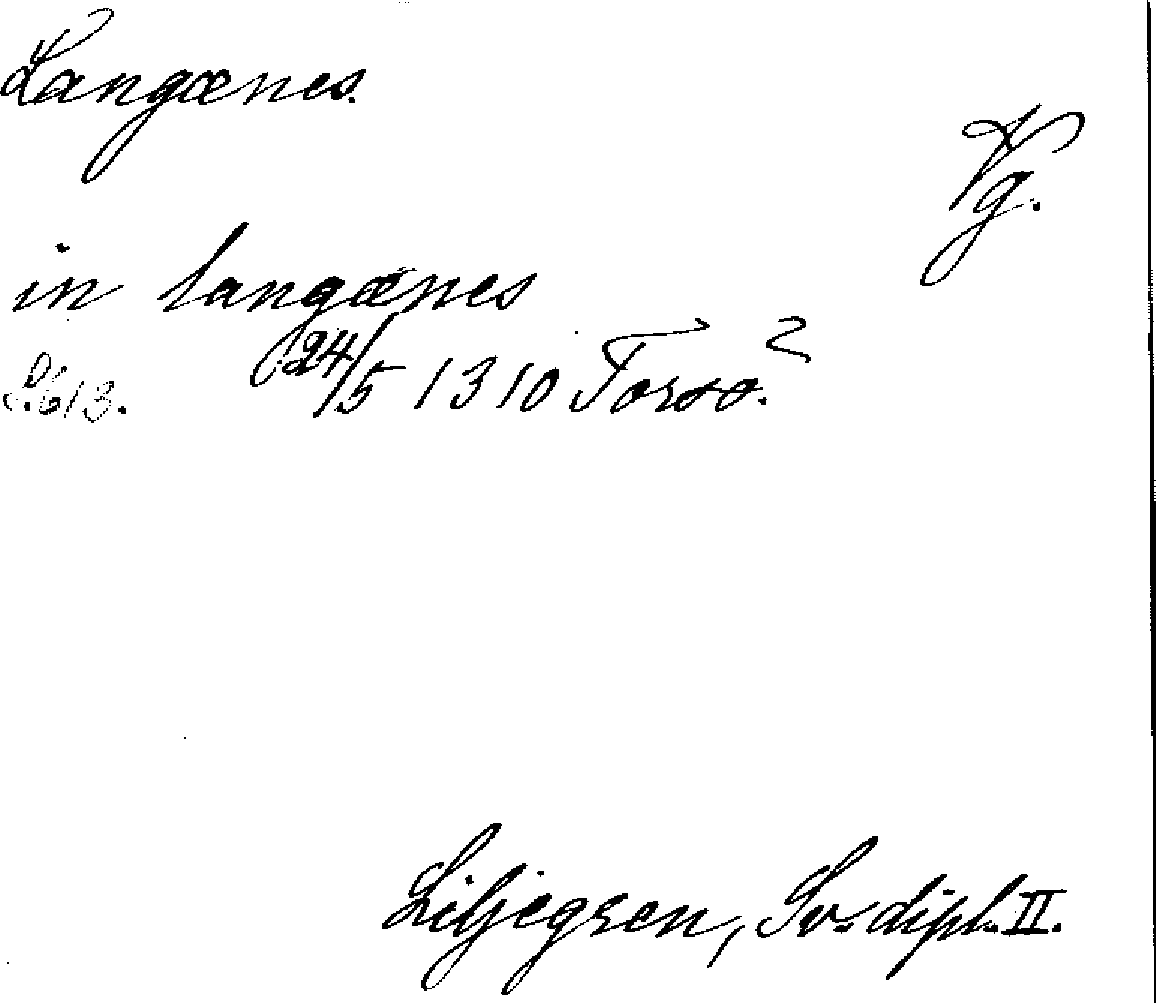 Langænes.
Vg.
in langænes
S. 613. (24/5 1310 Torsö.?
Liljegren, Sv. dipl. II.